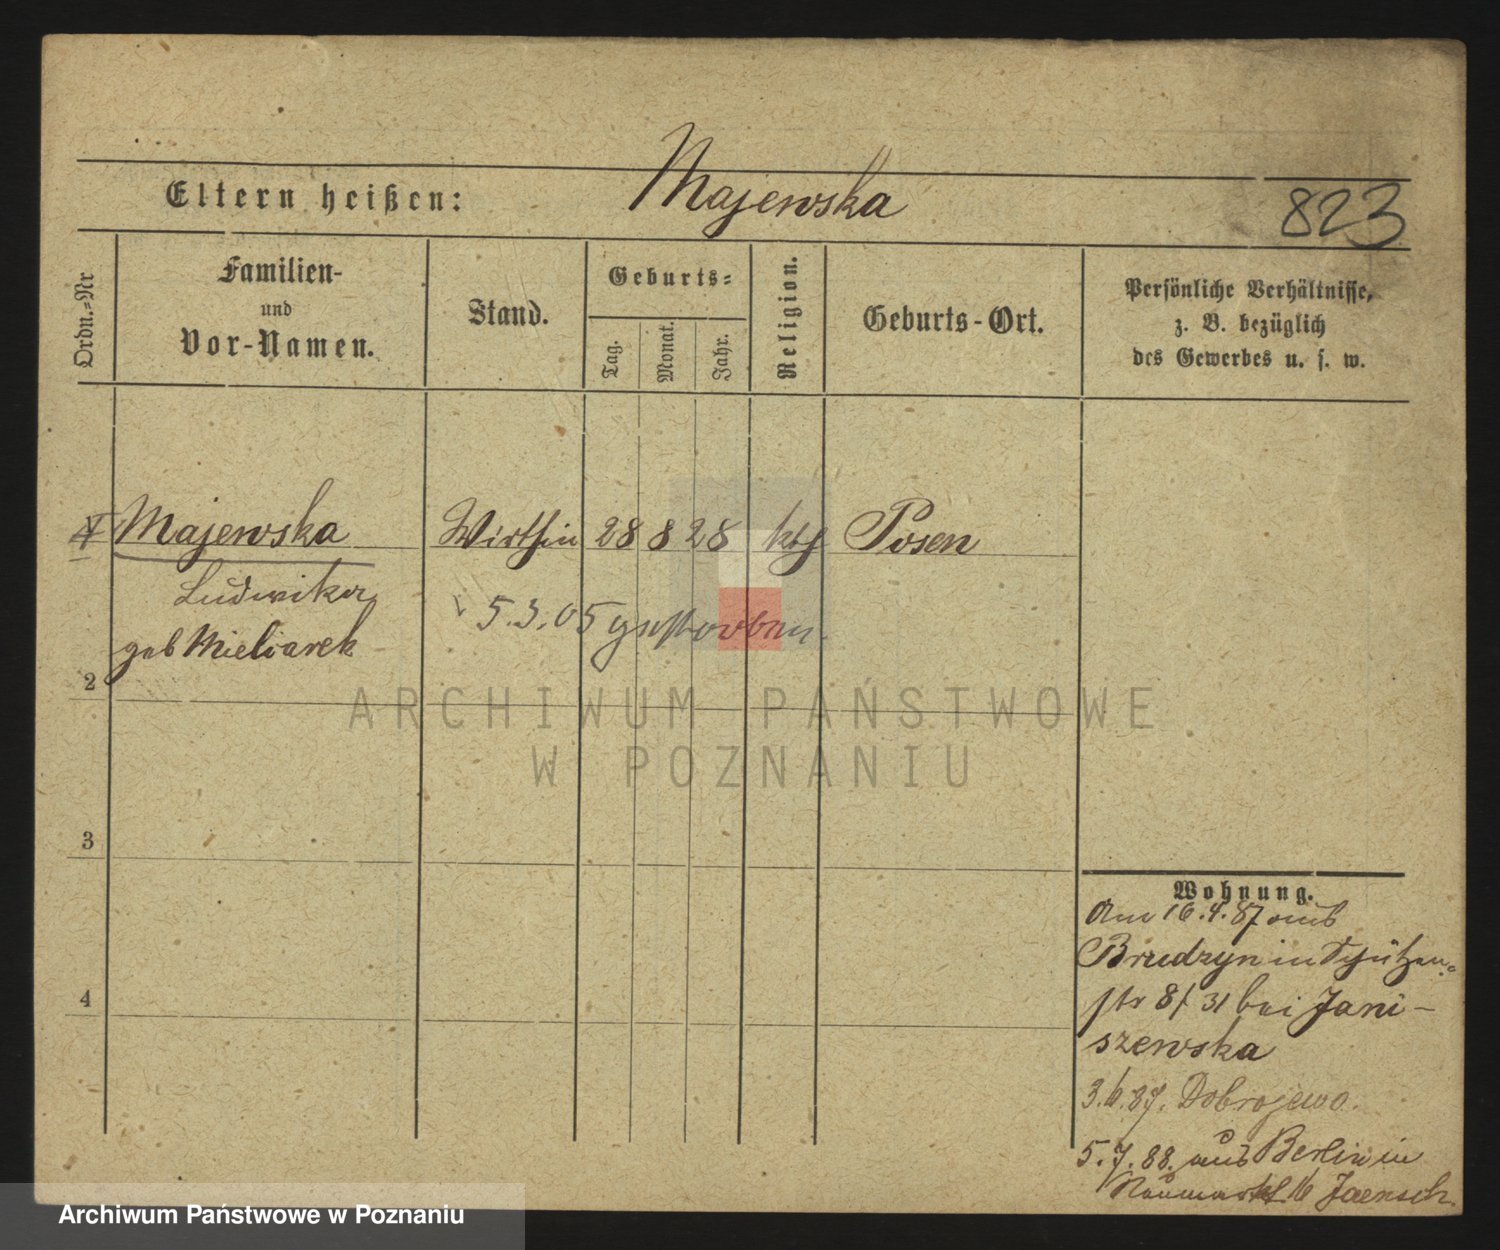 Eltern heißen: Majewska
823
Ordn.-Nr
Familien-
und
Vor-Namen.
Stand.
Geburts-
Tag.
Monat.
Jahr.
Religion.
Geburts-Ort.
Persönliche Verhältnisse,
z. B. bezüglich
des Gewerbes u. s. w.
Majewska Wirthin 28 8 28 kth Posen
Ludwika
5.3.05 gestorben.
geb Mieliarek
2
ARCHIWUM PAŃSTWOWE
W POZNANIU
3
4
Wohnung.
Am 16.4.87 aus
Brudzyn in Schützen-
str 8/31 bei Jani-
szewska
3.6.87. Dobrojewo.
5.7.88. aus Berlin in
Neumarkt Jaensch.
Archiwum Państwowe w Poznaniu